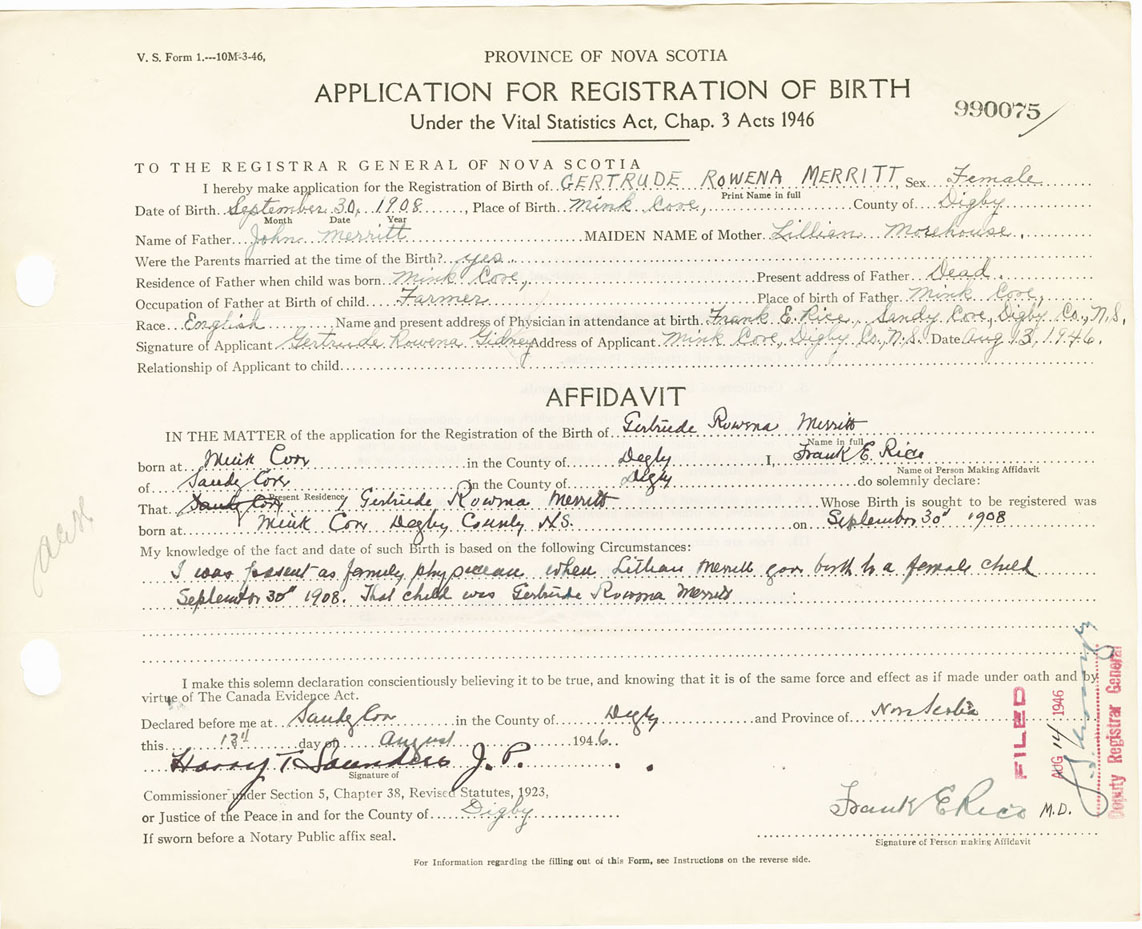 V. S. Form 1.---10M-3-46,
PROVINCE OF NOVA SCOTIA
APPLICATION FOR REGISTRATION OF BIRTH
Under the Vital Statistics Act, Chap. 3 Acts 1946
990075
TO THE REGISTRAR GENERAL OF NOVA SCOTIA
I hereby make application for the Registration of Birth of GERTRUDE ROWENA MERRITT, Sex Female
Print Name in full
Date of Birth September 30, 1908, Place of Birth Mink Cove, County of Digby
Month Date Year
Name of Father John Merritt MAIDEN NAME of Mother Lillian Morehouse.
Were the Parents married at the time of the Birth? yes.
Residence of Father when child was born Mink Cove, Present address of Father Dead.
Occupation of Father at Birth of child Farmer Place of birth of Father Mink Cove,
Race English Name and present address of Physician in attendance at birth Frank E. Rice, Sandy Cove, Digby Co., N.S.
Signature of Applicant Gertrude Rowena Gidney Address of Applicant Mink Cove, Digby Co., N.S. Date Aug 13, 1946.
Relationship of Applicant to child
AFFIDAVIT
IN THE MATTER of the application for the Registration of the Birth of Gertrude Rowena Merritt
Name in full
born at Mink Cove in the County of Digby I, Frank E. Rice
Name of Person Making Affidavit
of Sandy Cove in the County of Digby do solemnly declare:
Present Residence
That Sandy Cove Gertrude Rowena Merritt Whose Birth is sought to be registered was
born at Mink Cove Digby County N.S. on September 30th 1908
My knowledge of the fact and date of such Birth is based on the following Circumstances:
I was present as family physician when Lillian Merritt gave birth to a female child
September 30th 1908. That child was Gertrude Rowena Merritt
I make this solemn declaration conscientiously believing it to be true, and knowing that it is of the same force and effect as if made under oath and by
virtue of The Canada Evidence Act.
Declared before me at Sandy Cove in the County of Digby and Province of Nova Scotia
this 13th day of August 1946.
Harry T Saunders J. P.
Signature of
Commissioner under Section 5, Chapter 38, Revised Statutes, 1923,
or Justice of the Peace in and for the County of Digby
If sworn before a Notary Public affix seal.
Frank E Rice M.D.
Signature of Person making Affidavit
For Information regarding the filling out of this Form, see Instructions on the reverse side.
FILED
AUG 14 1946
Deputy Registrar General